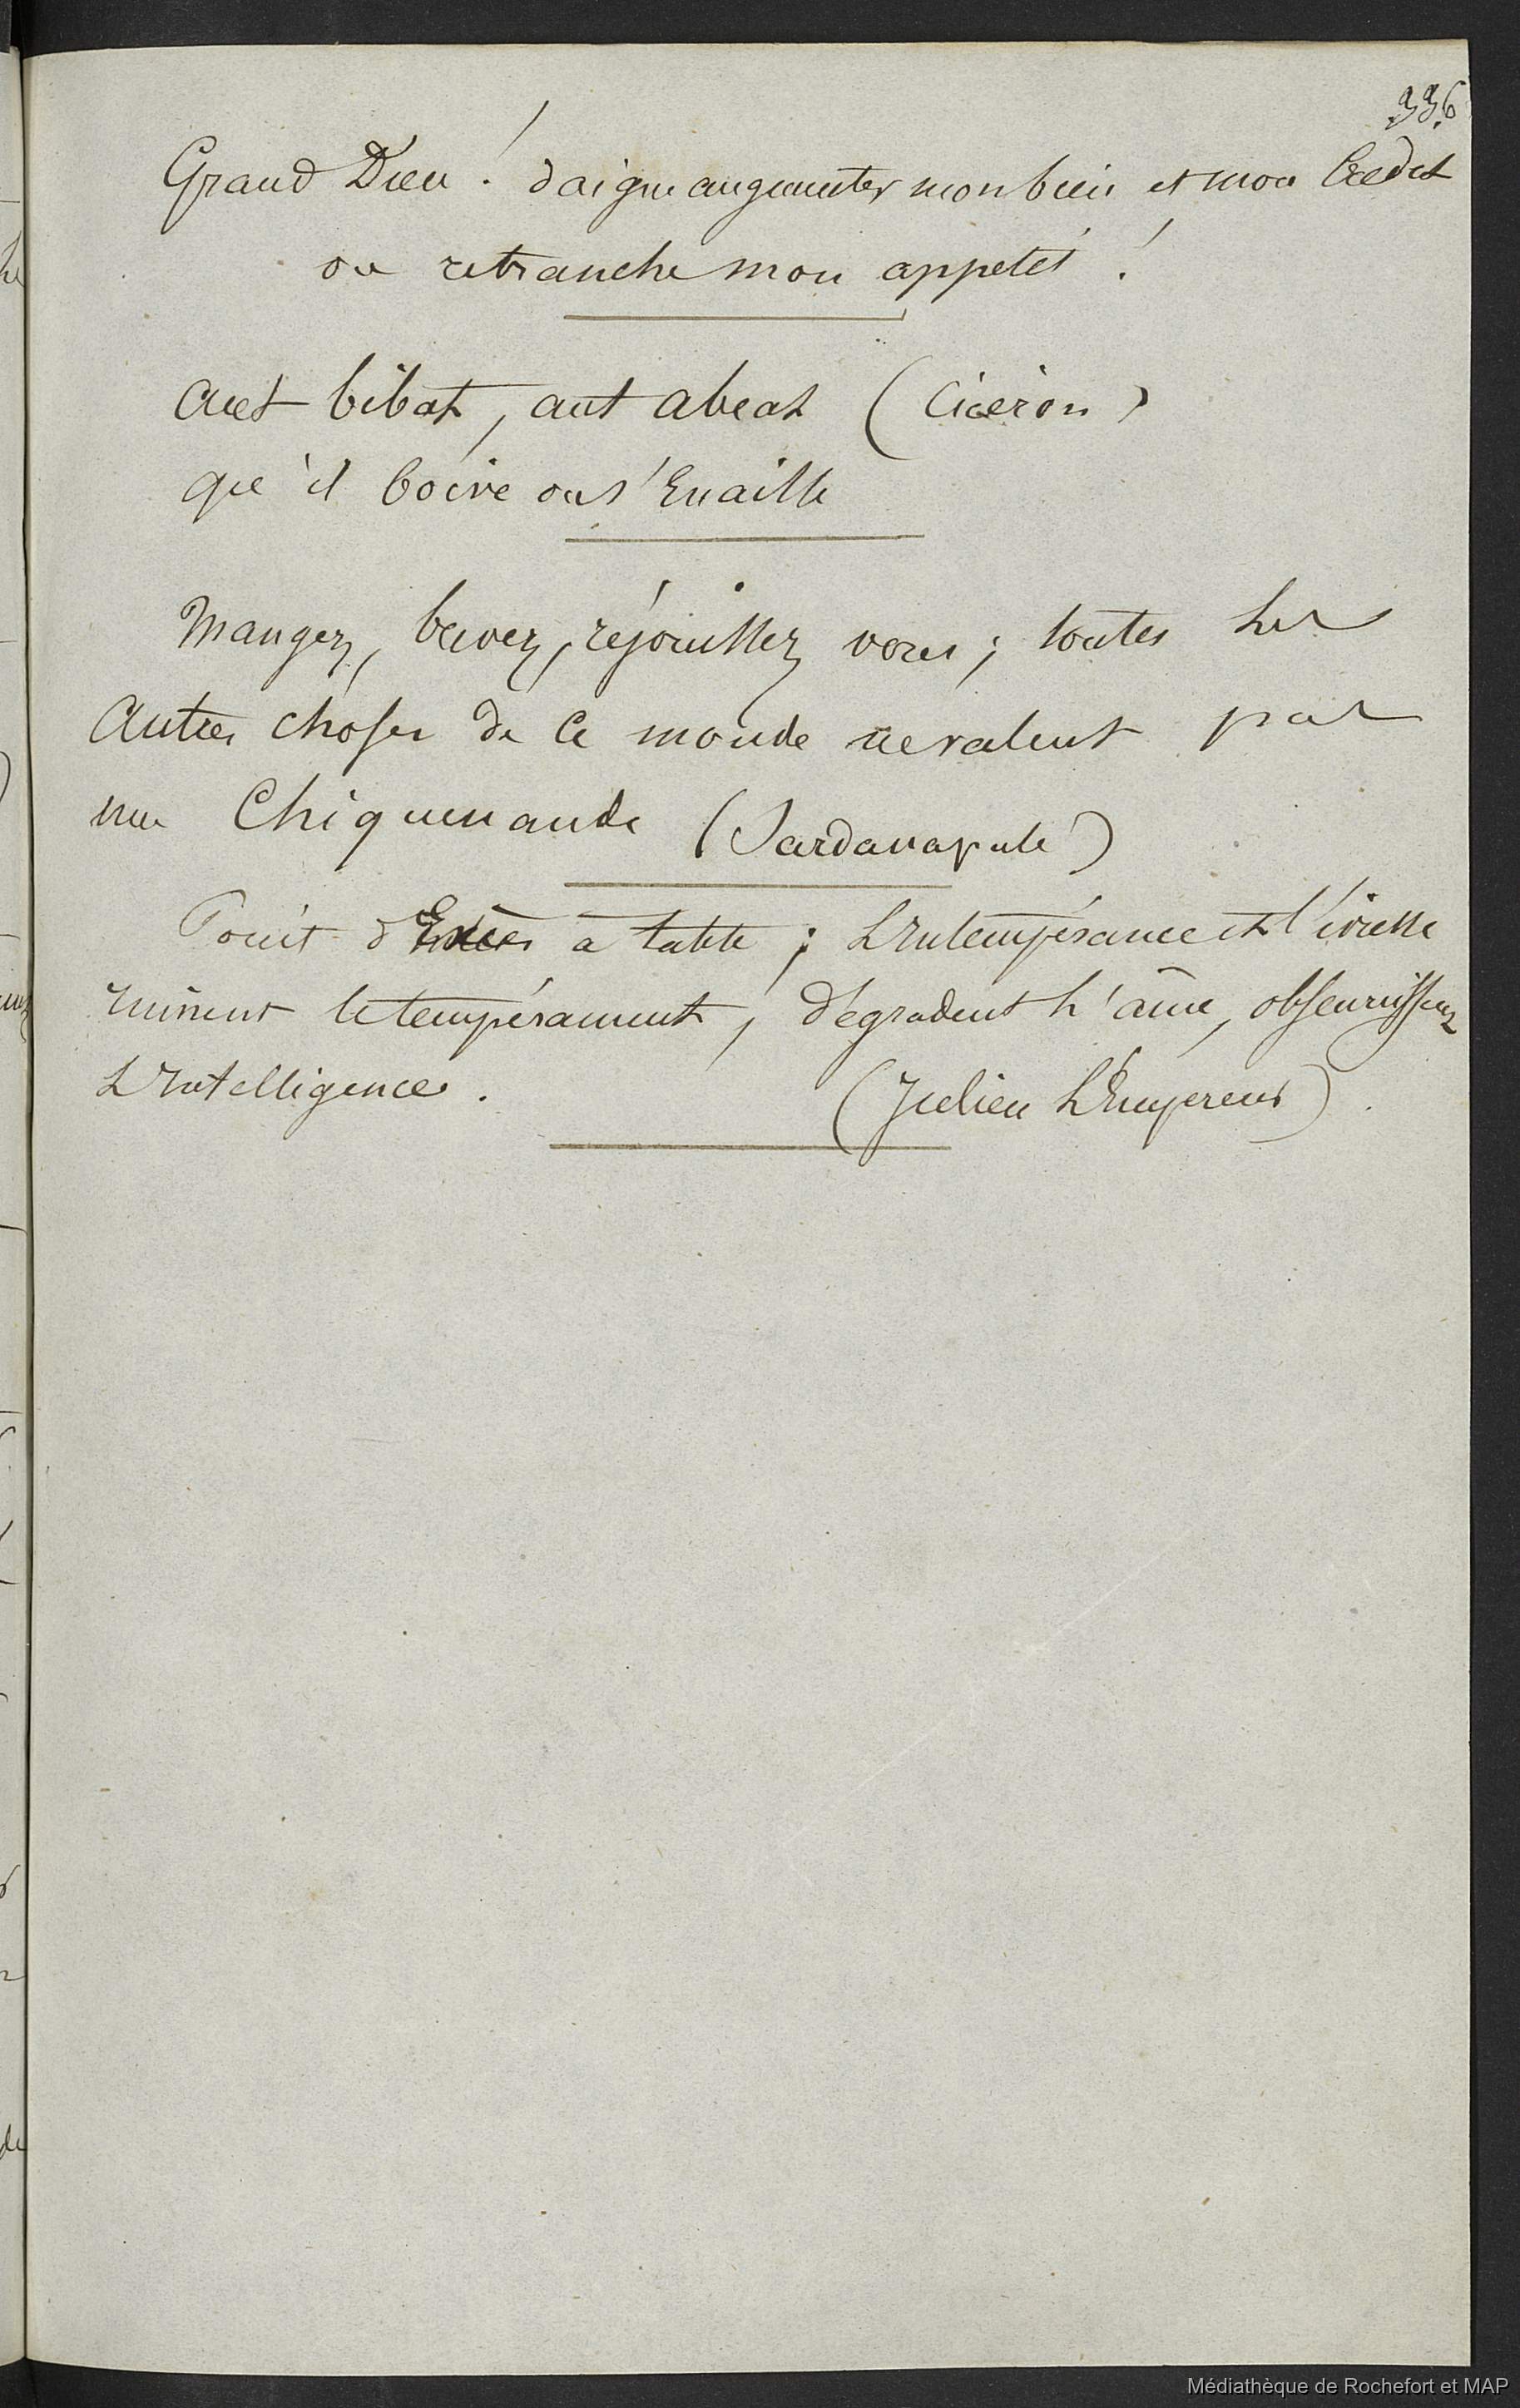 336
Grand Dieu ! daigne augmenter mon bien et mon Credit
ou retranche mon appetit !
Aut bibat, aut abeat (Cicéron)
qu'il boive ou s'En aille
Mangez, buvez, réjouissez vous ; toutes les
Autres choses de ce monde ne valent pas
une Chiquenaude (Sardanapale)
Point d'Excès à table ; L'Intempérance et l'ivresse
ruinent le tempérament, dégradent l'âme, obscurcissent
L'Intelligence. (Julien L'Empereur).
Médiathèque de Rochefort et MAP